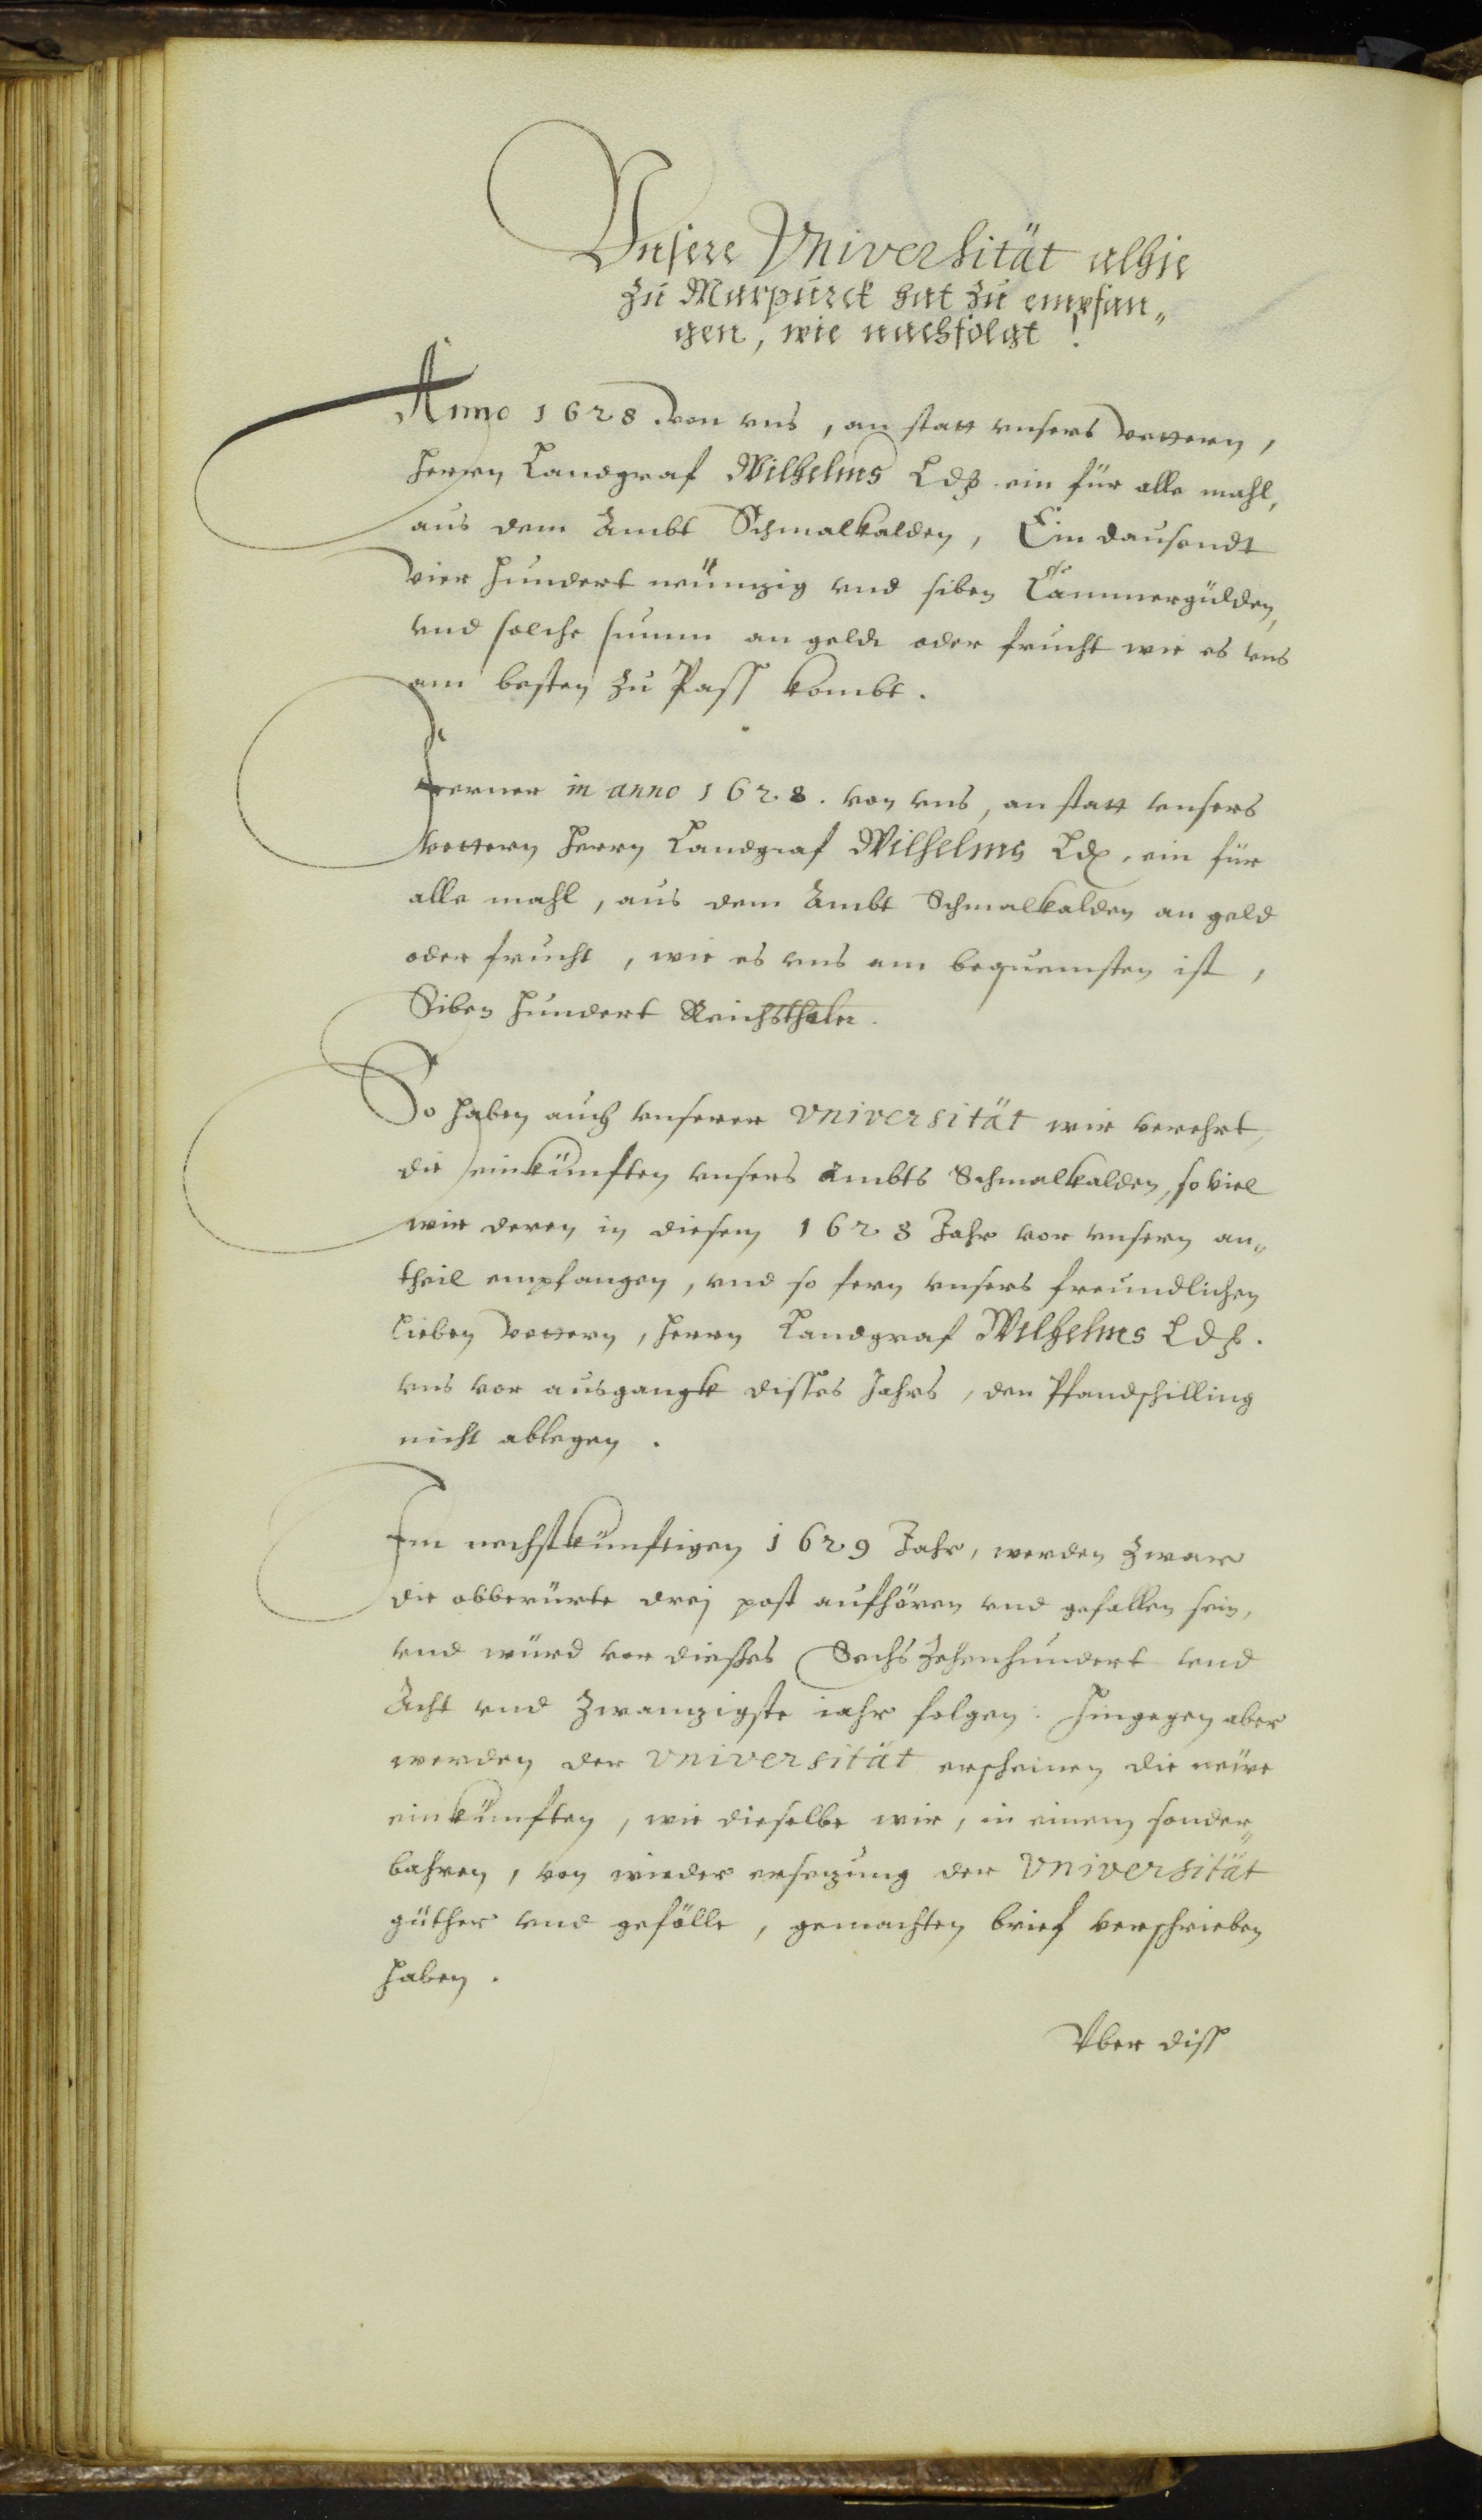 Vnsere Vniversität alhie
zu Marpurck hat zu empfan„
gen, wie nachfolgt!
Anno 1628. von vns, an statt vnsers Vettern,
Herrn Landgraf Wilhelms Ldß. ein für alle mahl,
aus dem Ambt Schmalkalden, Ein dausendt
Vier hundert neünzig vnd siben Cammergülden,
vnd solche summ an geldt oder frucht wie es vns
am besten zu Pass kombt.
Ferner in anno 1628. von vns, an statt vnsers
Vettern Herrn Landgraf Wilhelms Ldß. ein für
alle mahl, aus dem Ambt Schmalkalden an geld
oder frucht, wie es vns am bequemsten ist,
Siben hundert Reichsthaler.
So haben auch vnserer Vniversität wir verehrt,
die einkünften vnsers Ambts Schmalkalden, so viel
wir deren in diesem 1628 Jahr vor vnsern an„
theil empfangen, vnd so fern vnsers freundlichen
lieben Vettern, Herrn Landgraf Wilhelms Ldß.
vns vor ausgangk disses Jahrs, den Pfandschilling
nicht ablegen.
Im nechstkünftigen 1629 Jahr, werden zwar
die obberürte drej post aufhören vnd gefallen sein,
vnd würd vor dießes Sechszehenhundert vnd
Acht vnd zwanzigste iahr folgen. Hingegen aber
werden der Vniversität erscheinen die neüwe
einkünften, wie dieselbe wir, in einem sonder„
bahren, von wieder ersezung der Vniversität
güther vnd gefölle, gemachten brief verschrieben
haben.
Vber diss